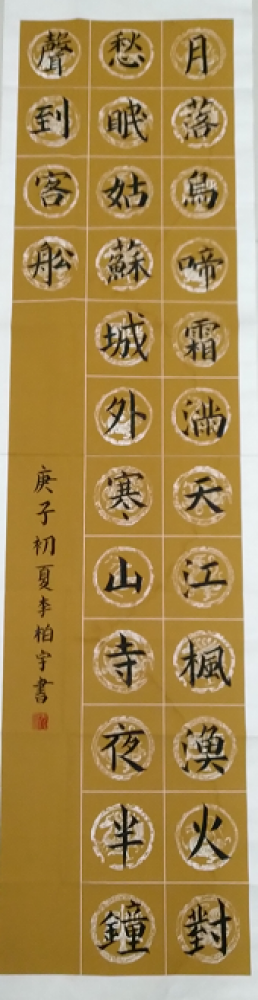 月落烏啼霜滿天江楓漁火對
愁眠姑蘇城外寒山寺夜半鐘
聲到客船
庚子初夏李柏宇書